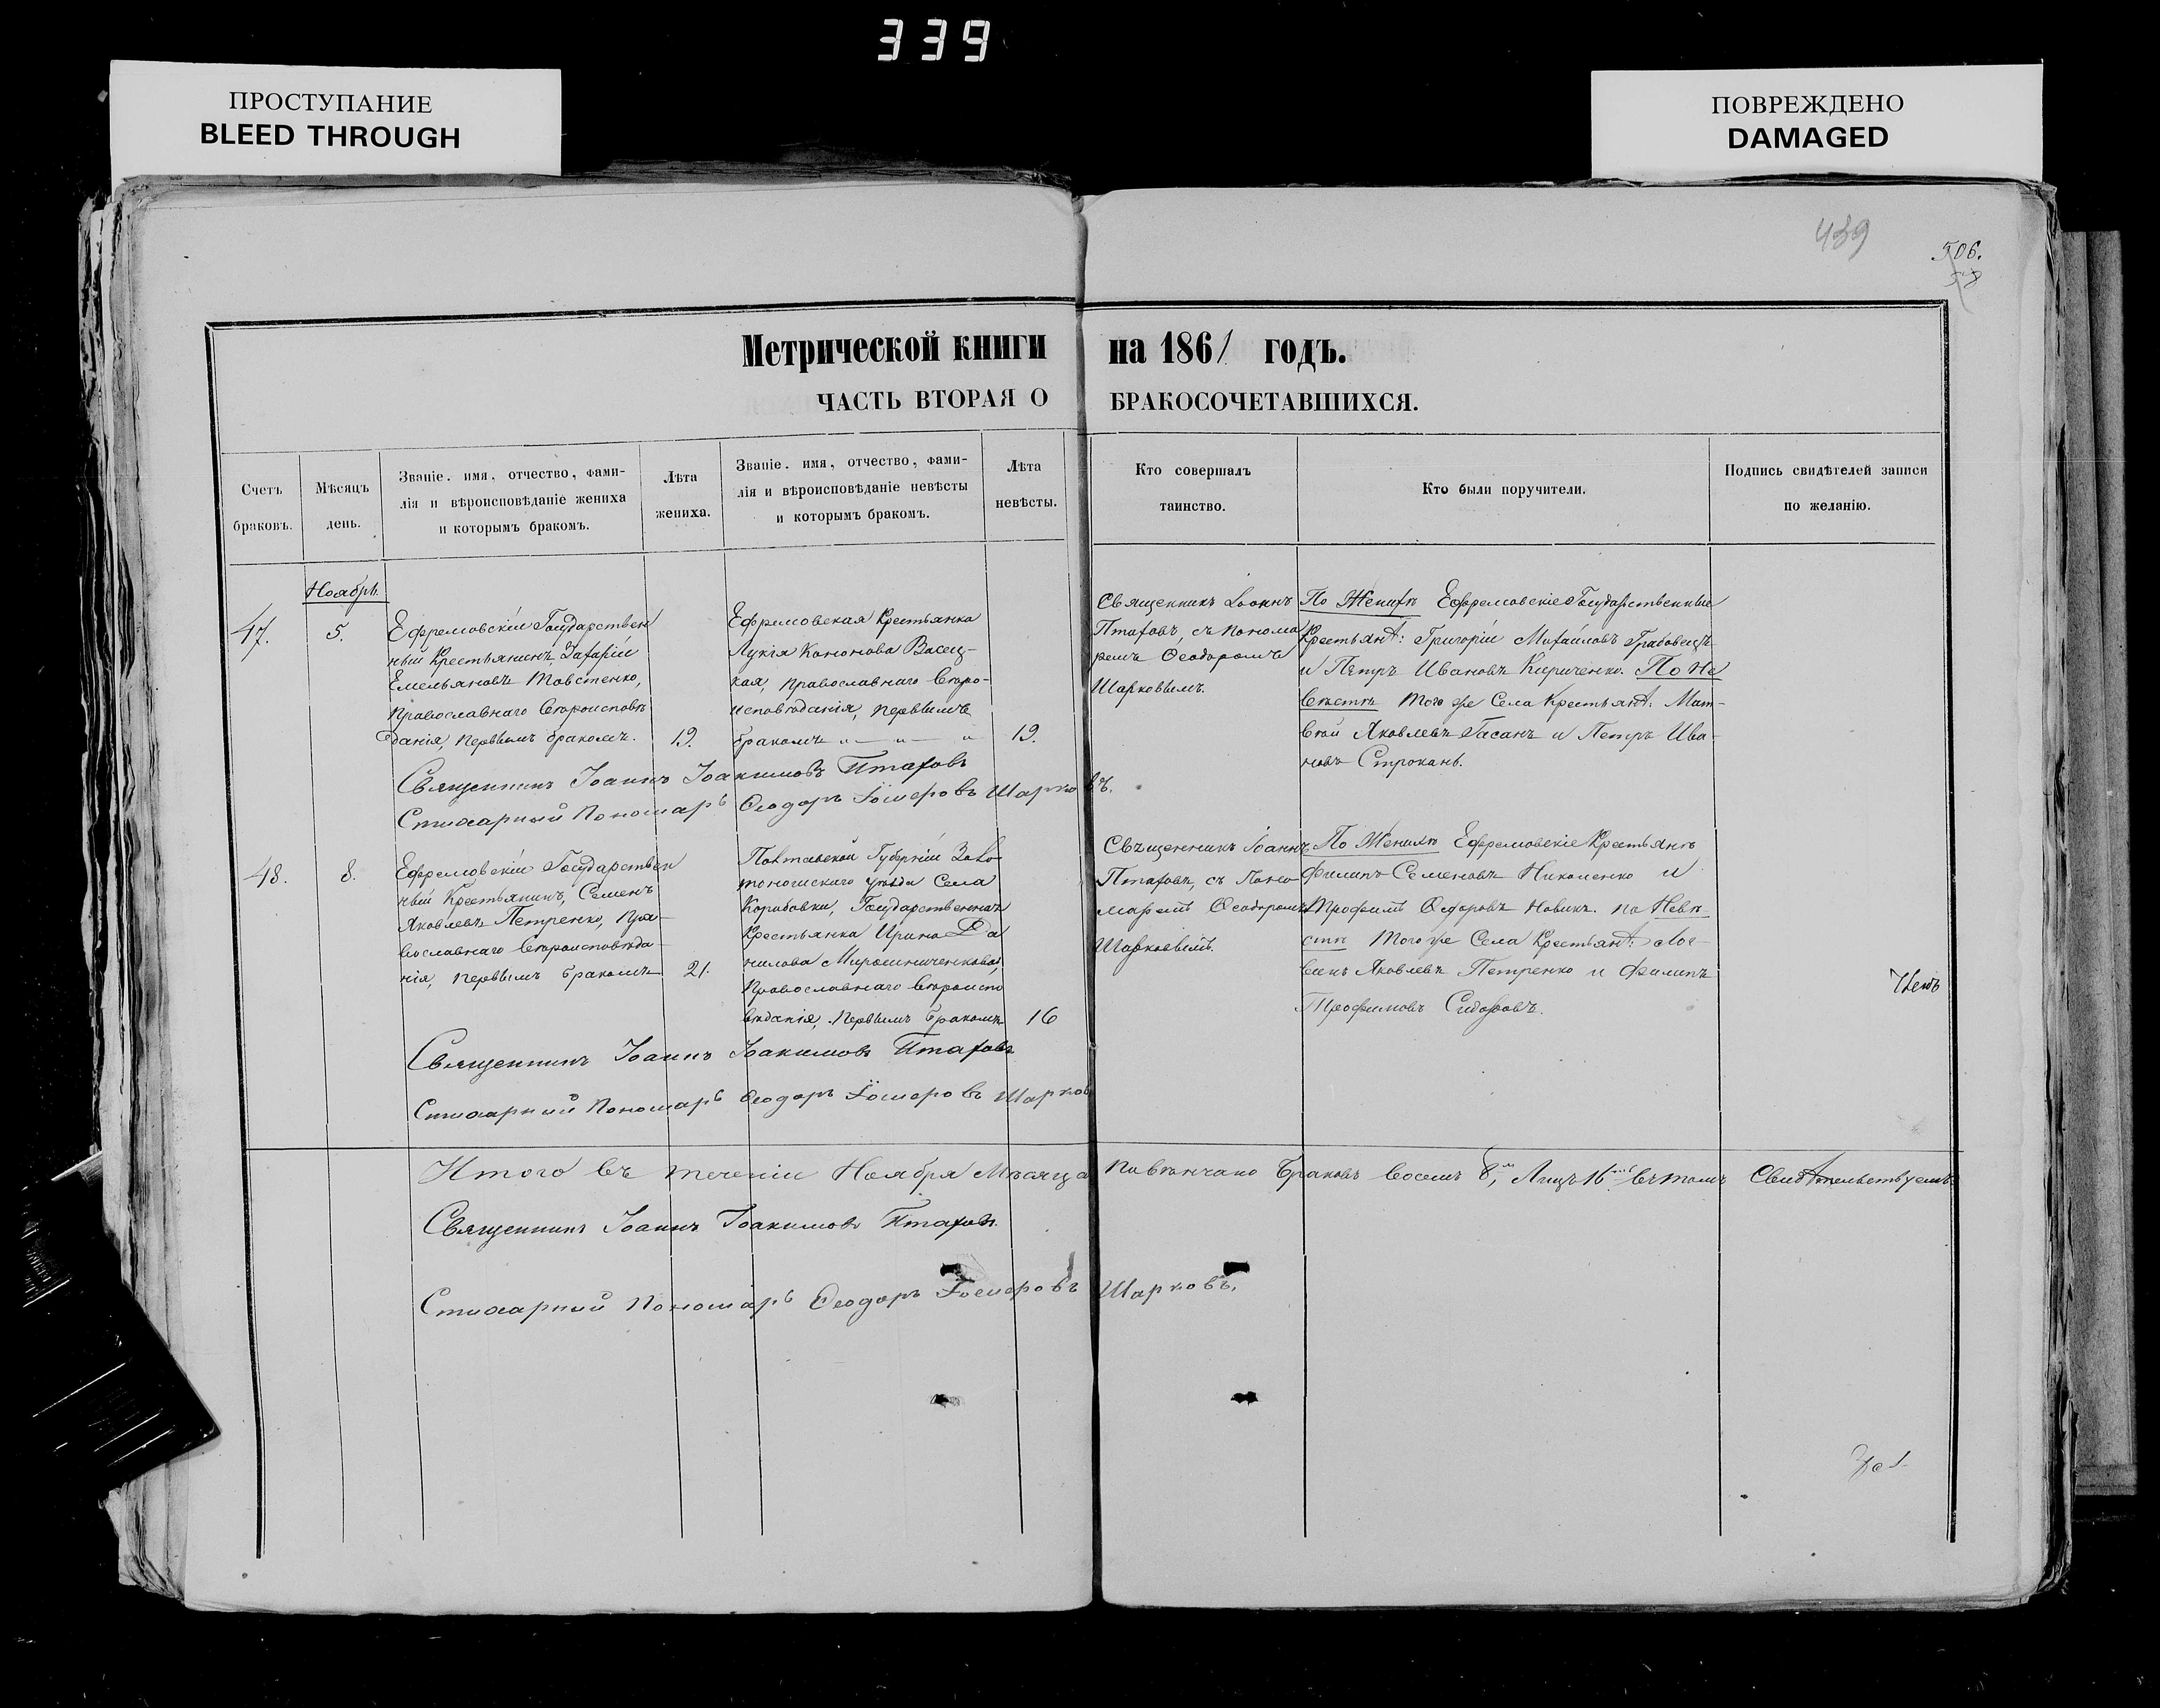 339
ПРОСТУПАНИЕ
BLEED THROUGH
ПОВРЕЖДЕНО
DAMAGED
439
506.
Метрической книги на 1861 годъ.
ЧАСТЬ ВТОРАЯ О БРАКОСОЧЕТАВШИХСЯ.
Счетъ
браковъ.
Мѣсяцъ
день.
Званіе. имя, отчество, фами-
лія и вѣроисповѣданіе жениха
и которымъ бракомъ.
Лѣта
жениха.
Званіе. имя, отчество, фами-
лія и вѣроисповѣданіе невѣсты
и которымъ бракомъ.
Лѣта
невѣсты.
Кто совершалъ
таинство.
Кто были поручители.
Подпись свидѣтелей записи
по желанію.
Ноябрь.
47.
5.
Ефремовскій Государствен
ный Крестьянинъ Захарій
Емельяновъ Товстенко,
Православнаго Вѣроисповѣ
данія, первымъ бракомъ.
19.
Ефремовская Крестьянка
Лукія Кононова Васец-
кая, Православнаго Вѣро-
исповѣданія, первымъ
бракомъ
19.
Священникъ Іоаннъ
Птаховъ, съ Понома
ремъ Ѳеодоромъ
Шарковымъ.
По Женихѣ Ефремовскіе Государственные
Крестьяне: Григорій Михайловъ Грабовецъ
и Петръ Ивановъ Кириченко. По Не
вѣстѣ того же Села Крестьяне: Мат-
вей Яковлевъ Гасанъ и Петръ Ива-
новъ Строкань.
Священникъ Іоаннъ Іоакимовъ Птаховъ
Стихарный Пономарь Ѳеодоръ Шарковъ.
48.
8.
Ефремовскій Государствен
ный Крестьянинъ, Семенъ
Яковлевъ Петренко, Пра-
вославнаго Вѣроисповѣда-
нія, первымъ бракомъ
21.
Полтавской Губерніи Золо
тоношскаго уѣзда Села
Коробовки, Государственная
Крестьянка Ирина Да
нилова Мирошниченкова,
Православнаго Вѣроиспо
вѣданія, первымъ бракомъ
16
Священникъ Іоаннъ
Птаховъ, съ Поно-
маремъ Ѳеодоромъ
Шарковымъ.
По Женихѣ Ефремовскіе Крестьяне
Филипъ Семеновъ Никоненко и
Трофимъ Ѳедоровъ Новикъ. по Невѣ
стѣ того же Села Крестьяне:
Яковлевъ Петренко и Филипъ
Трофимовъ Сидоровъ.
Священникъ Іоаннъ Іоакимовъ Птаховъ
Стихарный Пономарь Ѳеодоръ Шарковъ
Итого въ теченіи Ноября Мѣсяца повѣнчано браковъ восемь 8, Лицъ 16 въ томъ Свидѣтельствуемъ
Священникъ Іоаннъ Іоакимовъ Птаховъ.
Стихарный Пономарь Ѳеодоръ Шарковъ.